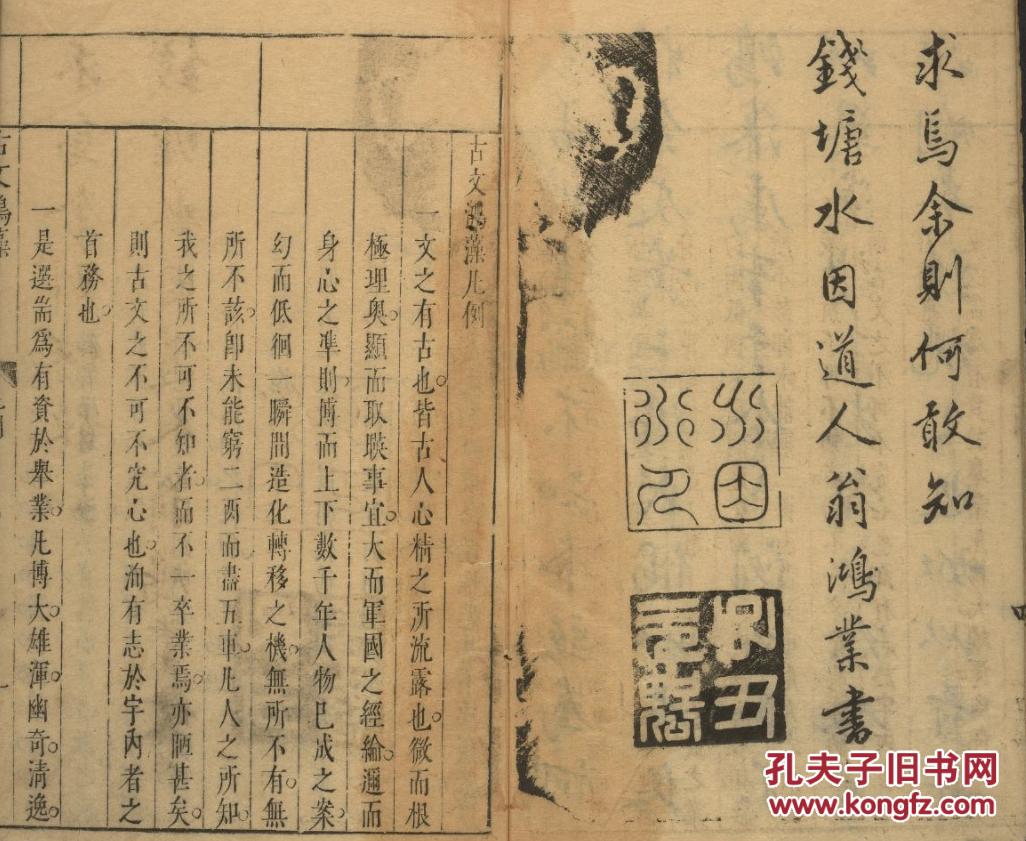 求焉余則何敢知
錢塘水因道人翁鴻業書
水因
辛丑
古文鴻藻凡例
一文之有古也皆古人心精之所流露也微而根
極理奧顯而取暎事宜大而軍國之經綸邇而
身心之凖則傳而上下數千年人物已成之案
幻而低徊一瞬間造化轉移之機無所不有無
所不該卽未能窮二酉而盡五車凡人之所知
我之所不可不知者而不一卒業焉亦陋甚矣
則古文之不可不究心也洵有志於宇內者之
首務也
一是選耑爲有資於舉業凡博大雄渾幽奇清逸
古文鴻藻
孔夫子旧书网
www.kongfz.com